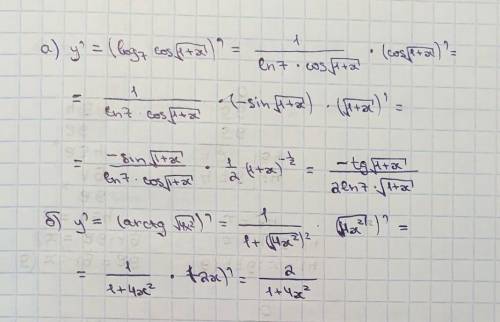 а) y' = (log₇ cos√(1+x))' = 1/(ln7 · cos√(1+x)) · (cos√(1+x))' =
= 1/(ln7 · cos√(1+x)) · (-sin√(1+x)) · (√(1+x))' =
= -sin√(1+x)/(ln7 · cos√(1+x)) · 1/2 (1+x)^(-1/2) = -tg√(1+x)/(2ln7 · √(1+x))
б) y' = (arctg √(4x²))' = 1/(1+(√(4x²))²) · (√(4x²))' =
= 1/(1+4x²) · (2x)' = 2/(1+4x²)